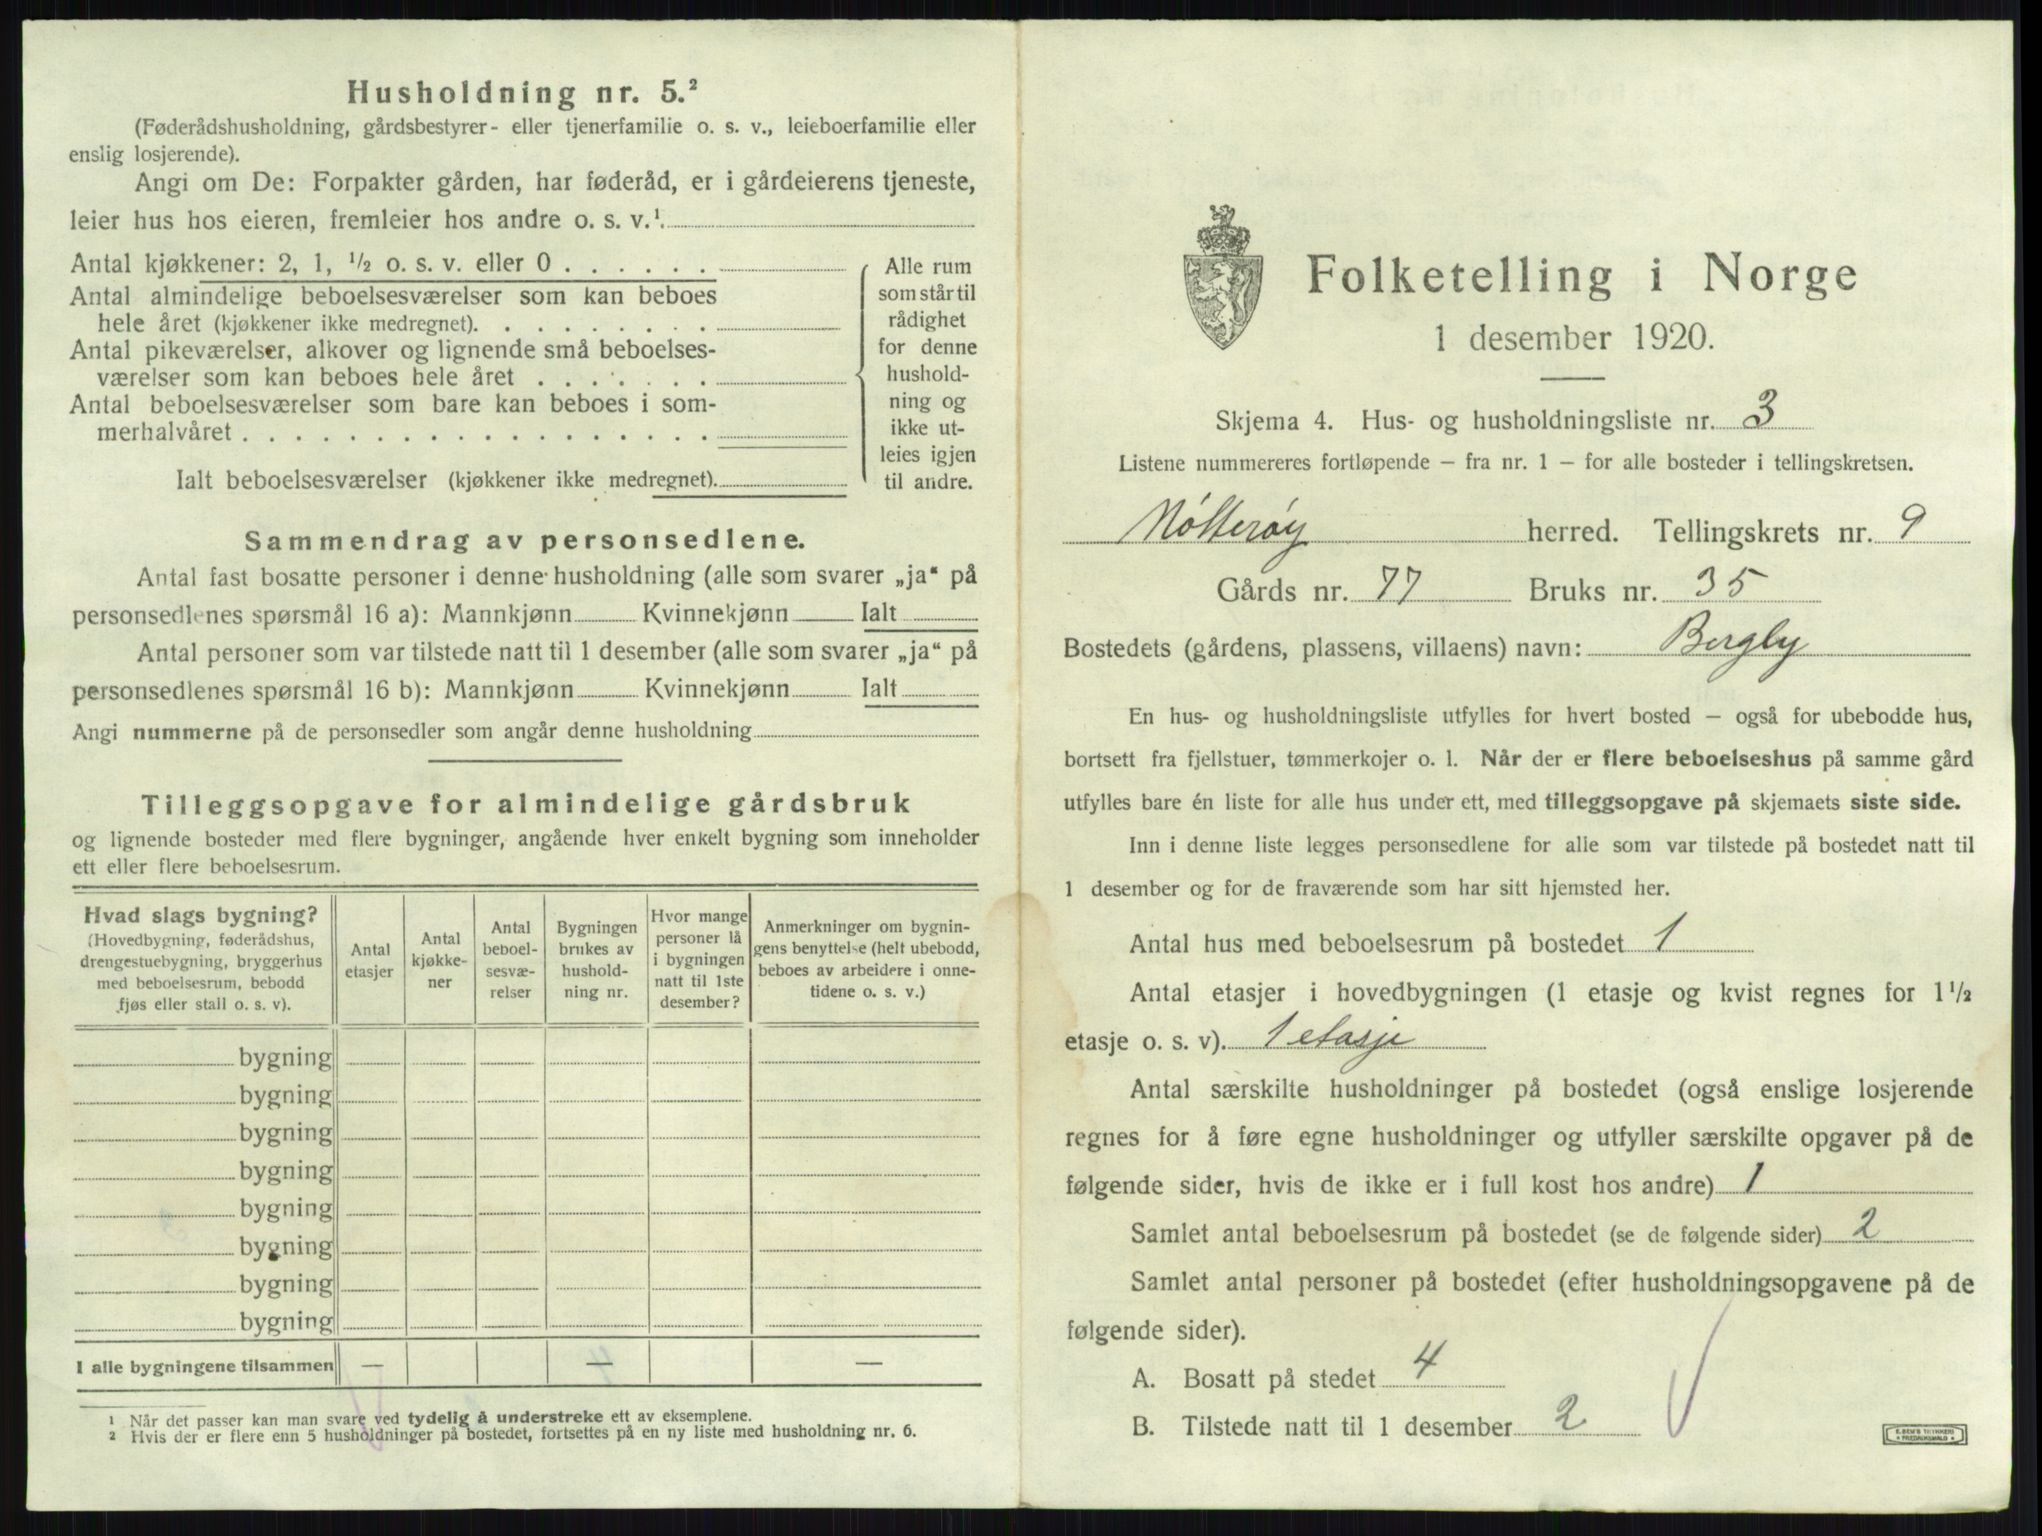 Husholdning nr. 5.²
(Føderådshusholdning, gårdsbestyrer- eller tjenerfamilie o. s. v., leieboerfamilie eller
enslig losjerende).
Angi om De: Forpakter gården, har føderåd, er i gårdeierens tjeneste,
leier hus hos eieren, fremleier hos andre o. s. v.¹
Antal kjøkkener: 2, 1, ½ o. s. v. eller 0
Antal almindelige beboelsesværelser som kan beboes
hele året (kjøkkener ikke medregnet).
Antal pikeværelser, alkover og lignende små beboelses-
værelser som kan beboes hele året
Antal beboelsesværelser som bare kan beboes i som-
merhalvåret
Ialt beboelsesværelser (kjøkkener ikke medregnet).
Alle rum
som står til
rådighet
for denne
hushold-
ning og
ikke ut-
leies igjen
til andre.
Sammendrag av personsedlene.
Antal fast bosatte personer i denne husholdning (alle som svarer „ja“ på
personsedlenes spørsmål 16 a): Mannkjønn Kvinnekjønn Ialt
Antal personer som var tilstede natt til 1 desember (alle som svarer „ja“ på
personsedlenes spørsmål 16 b): Mannkjønn Kvinnekjønn Ialt
Angi nummerne på de personsedler som angår denne husholdning
Tilleggsopgave for almindelige gårdsbruk
og lignende bosteder med flere bygninger, angående hver enkelt bygning som inneholder
ett eller flere beboelsesrum.
Hvad slags bygning?
(Hovedbygning, føderådshus,
drengestuebygning, bryggerhus
med beboelsesrum, bebodd
fjøs eller stall o. s. v).
Antal
etasjer
Antal
kjøkke-
ner
Antal
beboel-
sesvæ-
relser
Bygningen
brukes av
hushold-
ning nr.
Hvor mange
personer lå
i bygningen
natt til 1ste
desember?
Anmerkninger om bygnin-
gens benyttelse (helt ubebodd,
beboes av arbeidere i onne-
tidene o. s. v.)
bygning
bygning
bygning
bygning
bygning
bygning
bygning
bygning
I alle bygningene tilsammen — — —
¹ Når det passer kan man svare ved tydelig å understreke ett av eksemplene.
² Hvis der er flere enn 5 husholdninger på bostedet, fortsettes på en ny liste med husholdning nr. 6.
Folketelling i Norge
1 desember 1920.
Skjema 4. Hus- og husholdningsliste nr. 3
Listene nummereres fortløpende — fra nr. 1 — for alle bosteder i tellingskretsen.
Nøtterøy herred. Tellingskrets nr. 9
Gårds nr. 77 Bruks nr. 35
Bostedets (gårdens, plassens, villaens) navn: Bergly
En hus- og husholdningsliste utfylles for hvert bosted — også for ubebodde hus,
bortsett fra fjellstuer, tømmerkojer o. l. Når der er flere beboelseshus på samme gård
utfylles bare én liste for alle hus under ett, med tilleggsopgave på skjemaets siste side.
Inn i denne liste legges personsedlene for alle som var tilstede på bostedet natt til
1 desember og for de fraværende som har sitt hjemsted her.
Antal hus med beboelsesrum på bostedet 1
Antal etasjer i hovedbygningen (1 etasje og kvist regnes for 1½
etasje o. s. v). 1 etasje
Antal særskilte husholdninger på bostedet (også enslige losjerende
regnes for å føre egne husholdninger og utfyller særskilte opgaver på de
følgende sider, hvis de ikke er i full kost hos andre) 1
Samlet antal beboelsesrum på bostedet (se de følgende sider) 2
Samlet antal personer på bostedet (efter husholdningsopgavene på de
følgende sider).
A. Bosatt på stedet 4
B. Tilstede natt til 1 desember 2